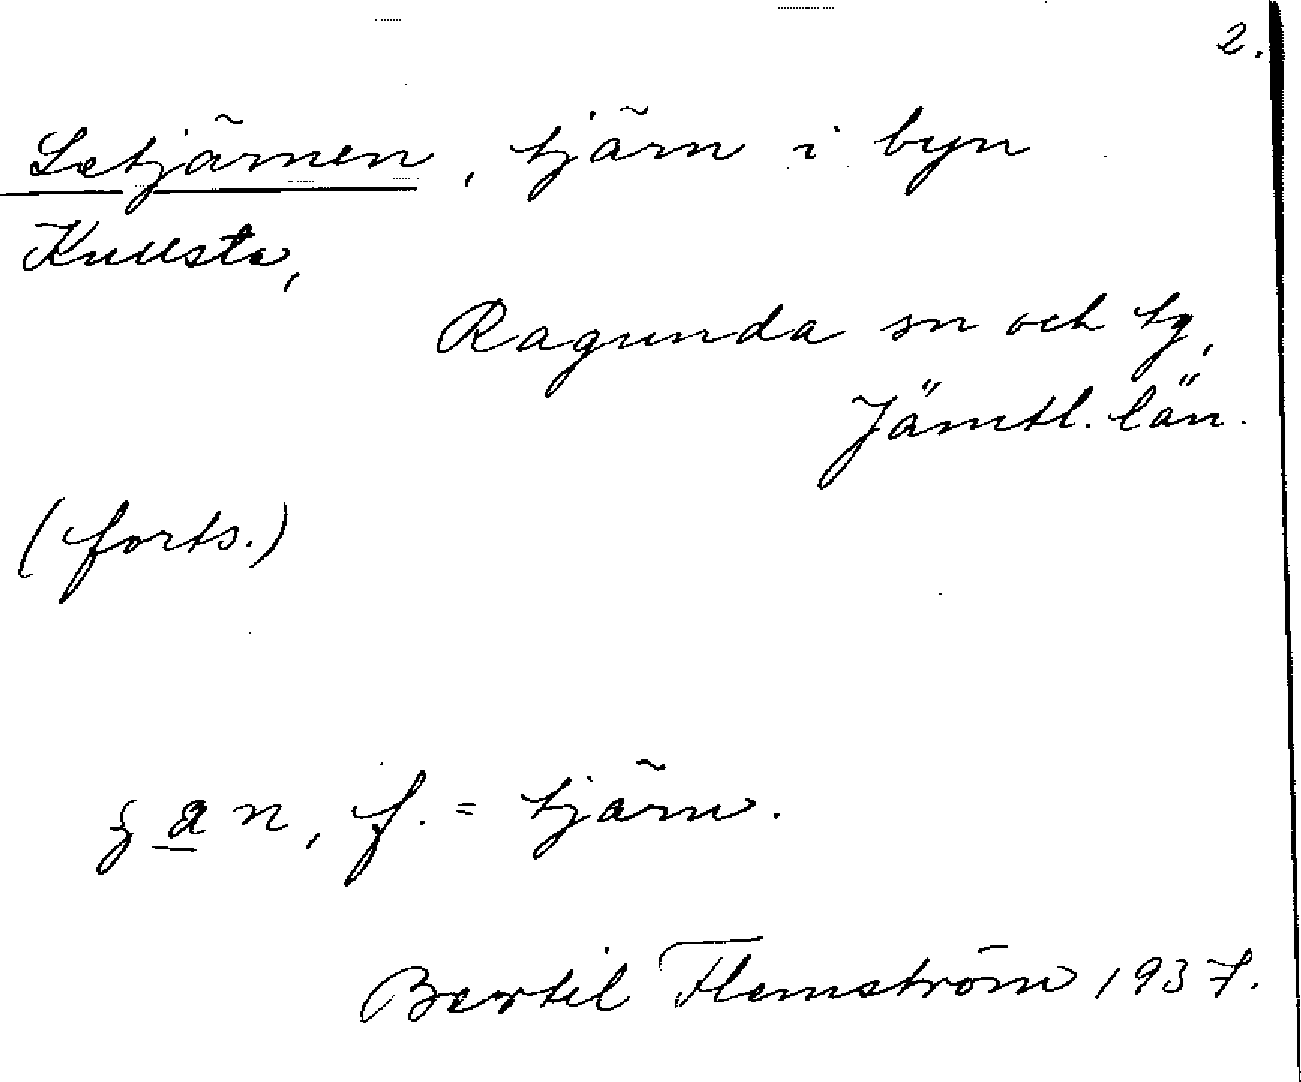 2.
Letjärnen, tjärn i byn
Kullsta,
Ragunda sn och tg,
Jämtl. län.
(forts.)
f. = tjärn.
Bertil Flemström 1937.